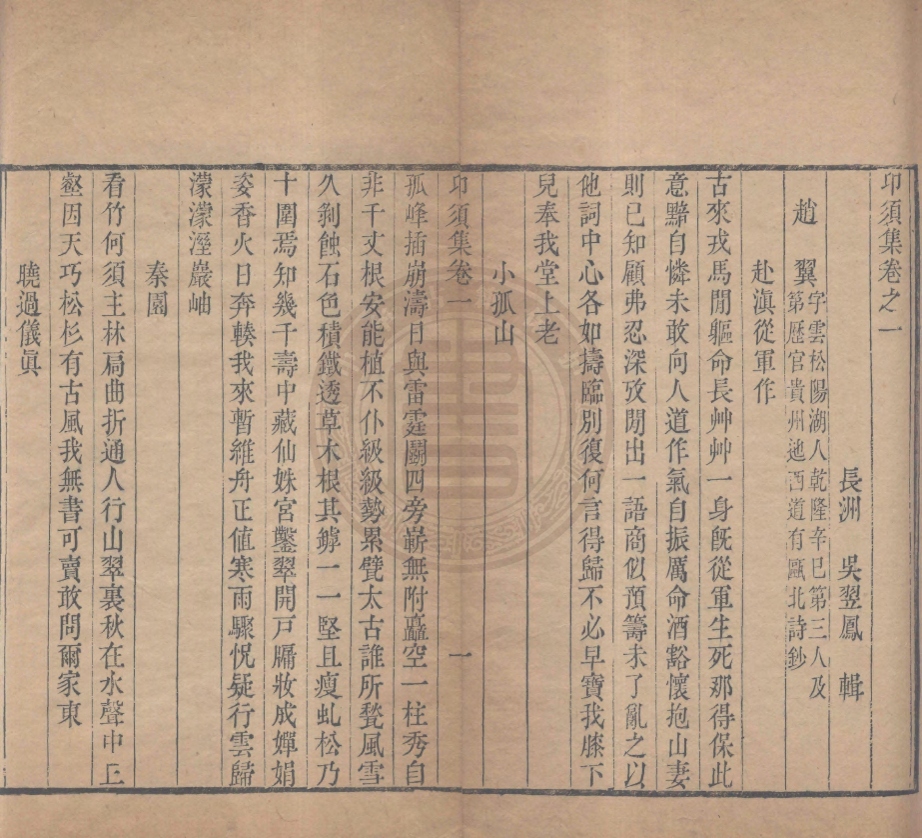 卬須集卷之一
長洲 吳翌鳳 輯
趙 翼 字雲松陽湖人乾隆辛巳第三人及
第歷官貴州迤西道有甌北詩鈔
赴滇從軍作
古來戎馬閒軀命長艸艸一身旣從軍生死那得保此
意黯自憐未敢向人道作氣自振厲命酒豁懷抱山妻
則已知顧弗忍深攷閒出一語商似預籌未了亂之以
他詞中心各如擣臨別復何言得歸不必早寶我膝下
兒奉我堂上老
小孤山
卬須集卷一 一
孤峰插崩濤日與雷霆鬭四旁嶄無附矗空一柱秀自
非千丈根安能植不仆級級勢累甓太古誰所甃風雪
久剝蝕石色積鐵透草木根其罅一一堅且瘦虬松乃
十圍焉知幾千壽中藏仙姝宮鑿翠開戸牖妝成嬋娟
姿香火日奔輳我來暫維舟正値寒雨驟怳疑行雲歸
濛濛溼巖岫
秦園
看竹何須主林扃曲折通人行山翠裏秋在水聲中丘
壑因天巧松杉有古風我無書可賣敢問爾家東
曉過儀眞